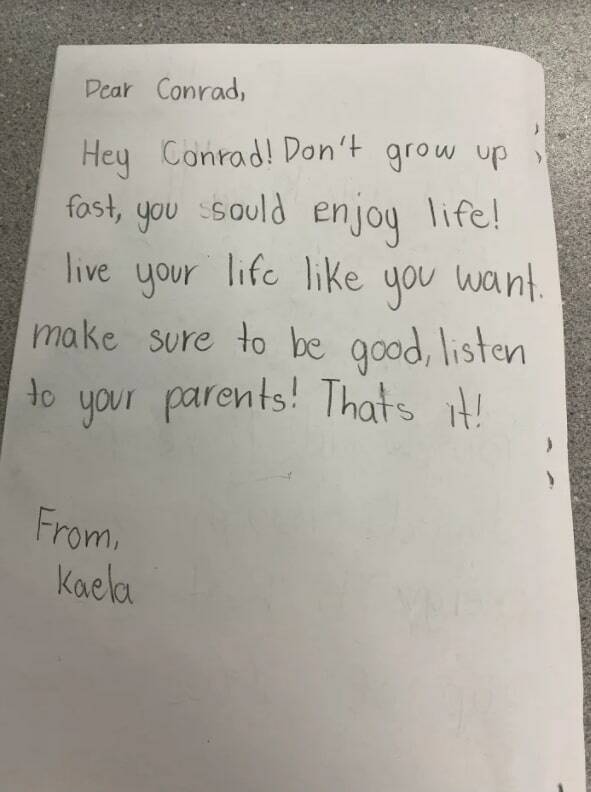 Dear Conrad,
Hey Conrad! Don't grow up
fast, you sould enjoy life!
live your life like you want.
make sure to be good, listen
to your parents! Thats it!
From,
Kaela